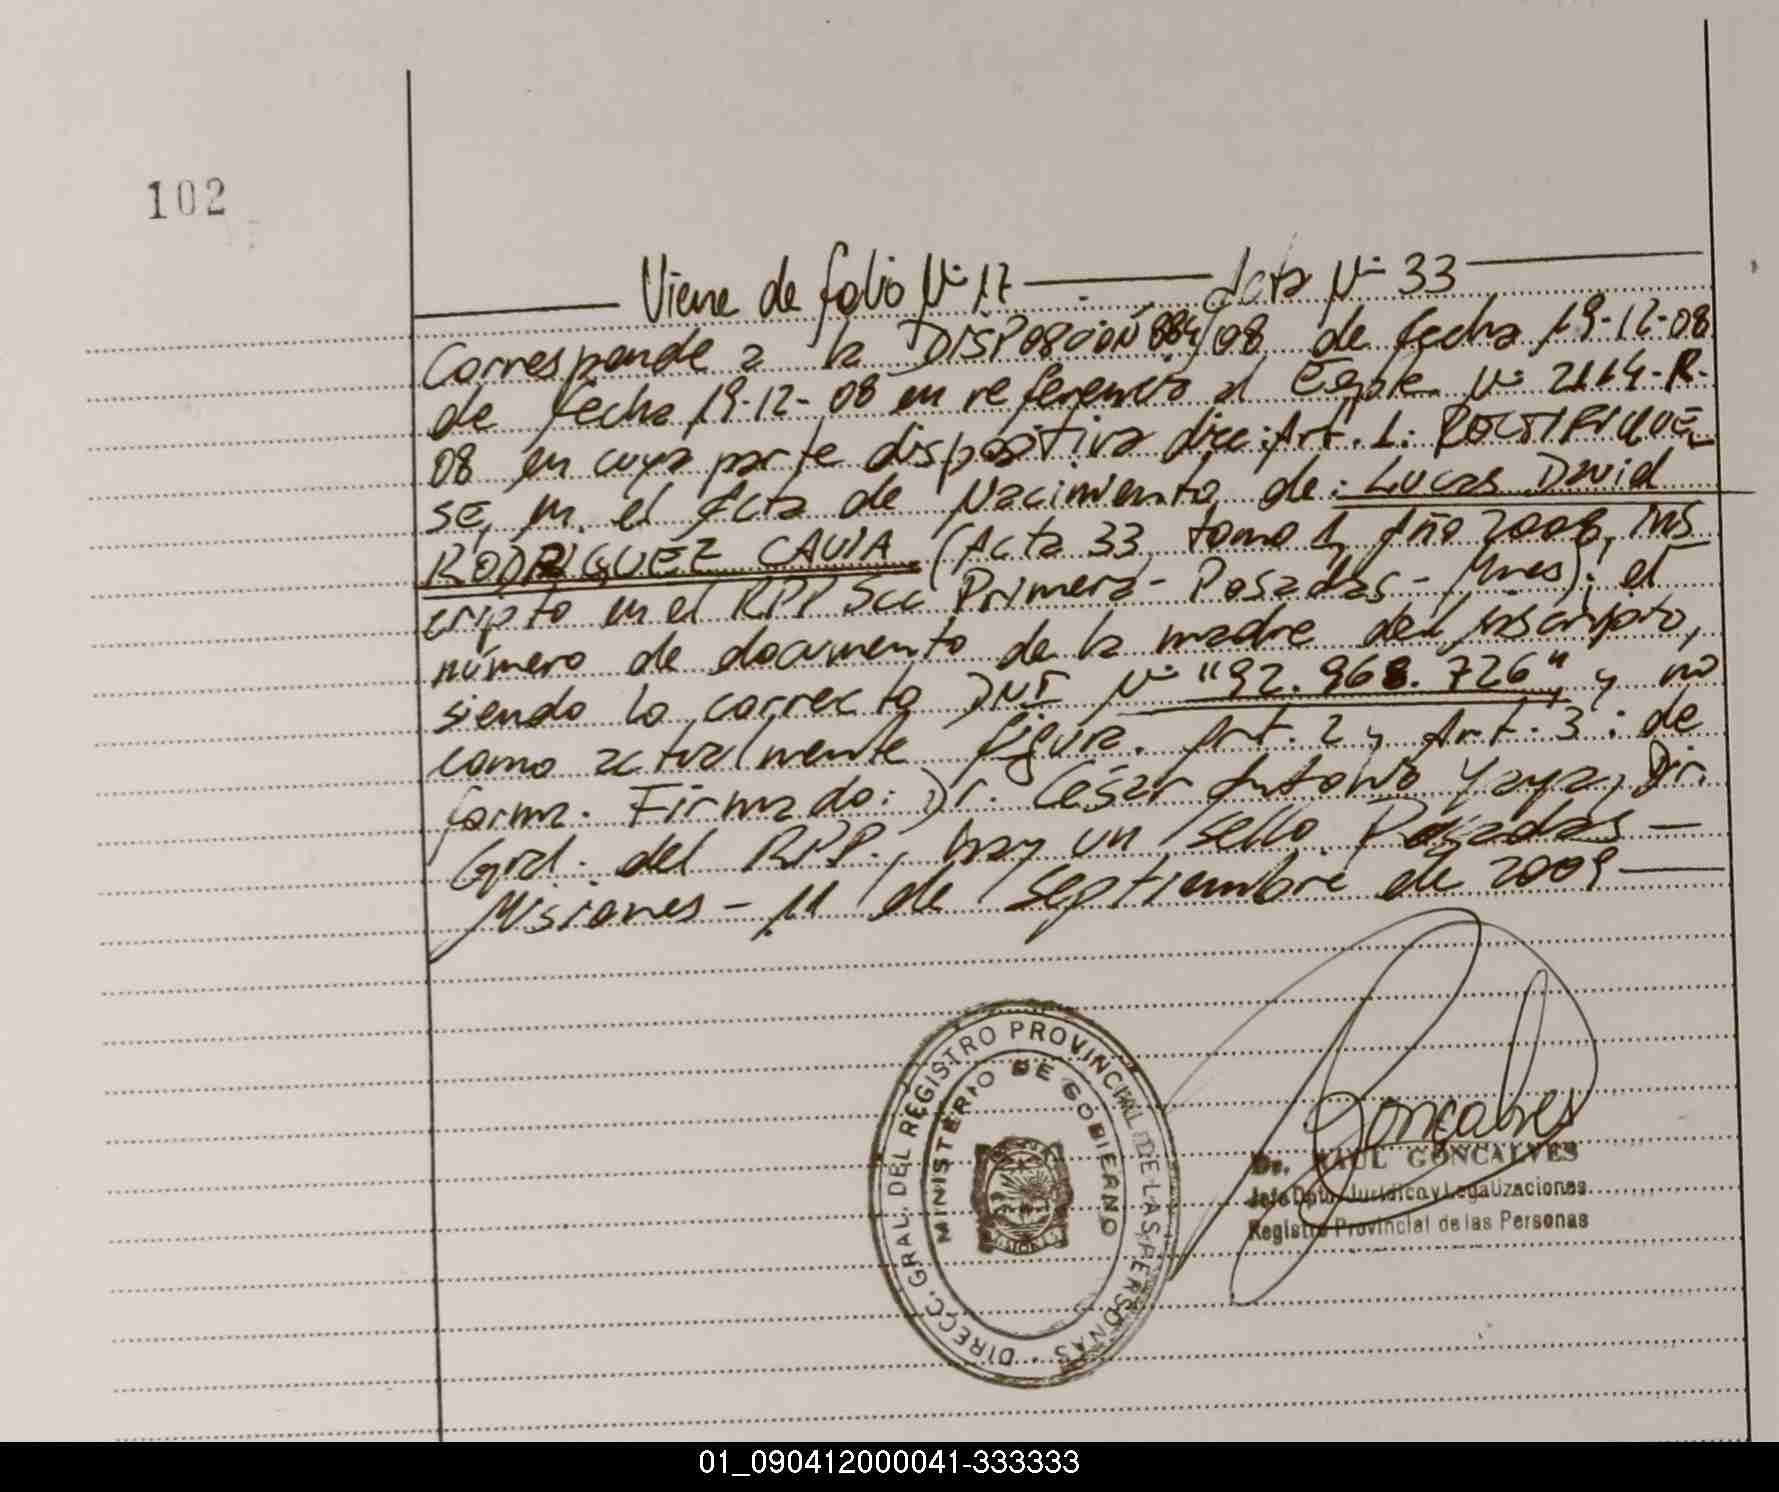 102
Viene de folio Nº 17 — Acta Nº 33
Corresponde a la DISPOSICIÓN 884/08 de fecha 19-12-08
de fecha 19-12-08 en referencia al Expte. Nº 2164-R-
08 en cuya parte dispositiva dice: Art. 1: RECTIFIQUE-
SE, en el Acta de Nacimiento de: Lucas David
RODRIGUEZ CAVIA (Acta 33, tomo 1, Año 2008, ins
cripto en el RPP Scc Primera - Posadas - Mnes): el
número de documento de la madre del inscripto,
siendo lo correcto DNI Nº "92.968.726" y no
como actualmente figura. Art. 2 y Art. 3: de
forma. Firmado: Dr. César Antonio Yaya, Dir.
Gral. del RPP., hay un sello. Posadas -
Misiones - 11 de septiembre de 2009
DIRECC. GRAL. DEL REGISTRO PROVINCIAL DE LAS PERSONAS
MINISTERIO DE GOBIERNO
MISIONES
Goncalves
Dr. RAUL GONCALVES
Jefe Dpto. Jurídico y Legalizaciones
Registro Provincial de las Personas
01_090412000041-333333